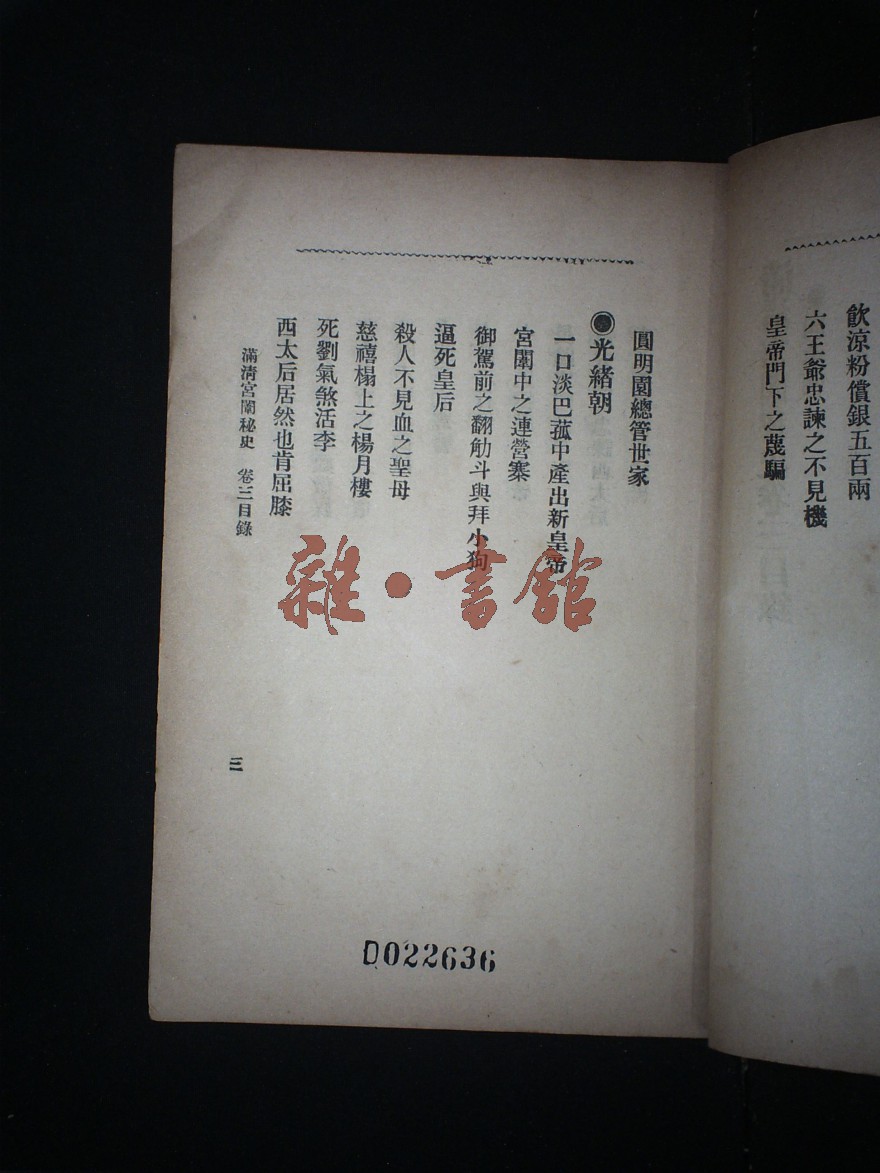 飲涼粉償銀五百兩
六王爺忠諫之不見機
皇帝門下之蔑騙
圓明園總管世家
◉光緒朝
一口淡巴菰中產出新皇帝
宮闈中之連營寨
御駕前之翻觔斗與拜小狗
逼死皇后
殺人不見血之聖母
慈禧榻上之楊月樓
死劉氣煞活李
西太后居然也肯屈膝
滿清宮闈秘史 卷三目錄
三
雜·書館
D022636